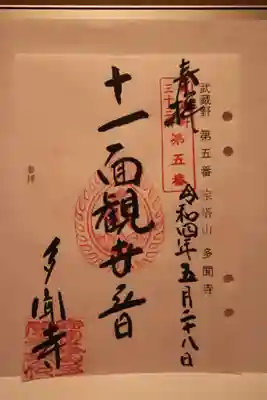 武蔵野 第五番 宝塔山 多聞寺
奉拝
第五番
令和四年五月二十八日
十一面観世音
多聞寺